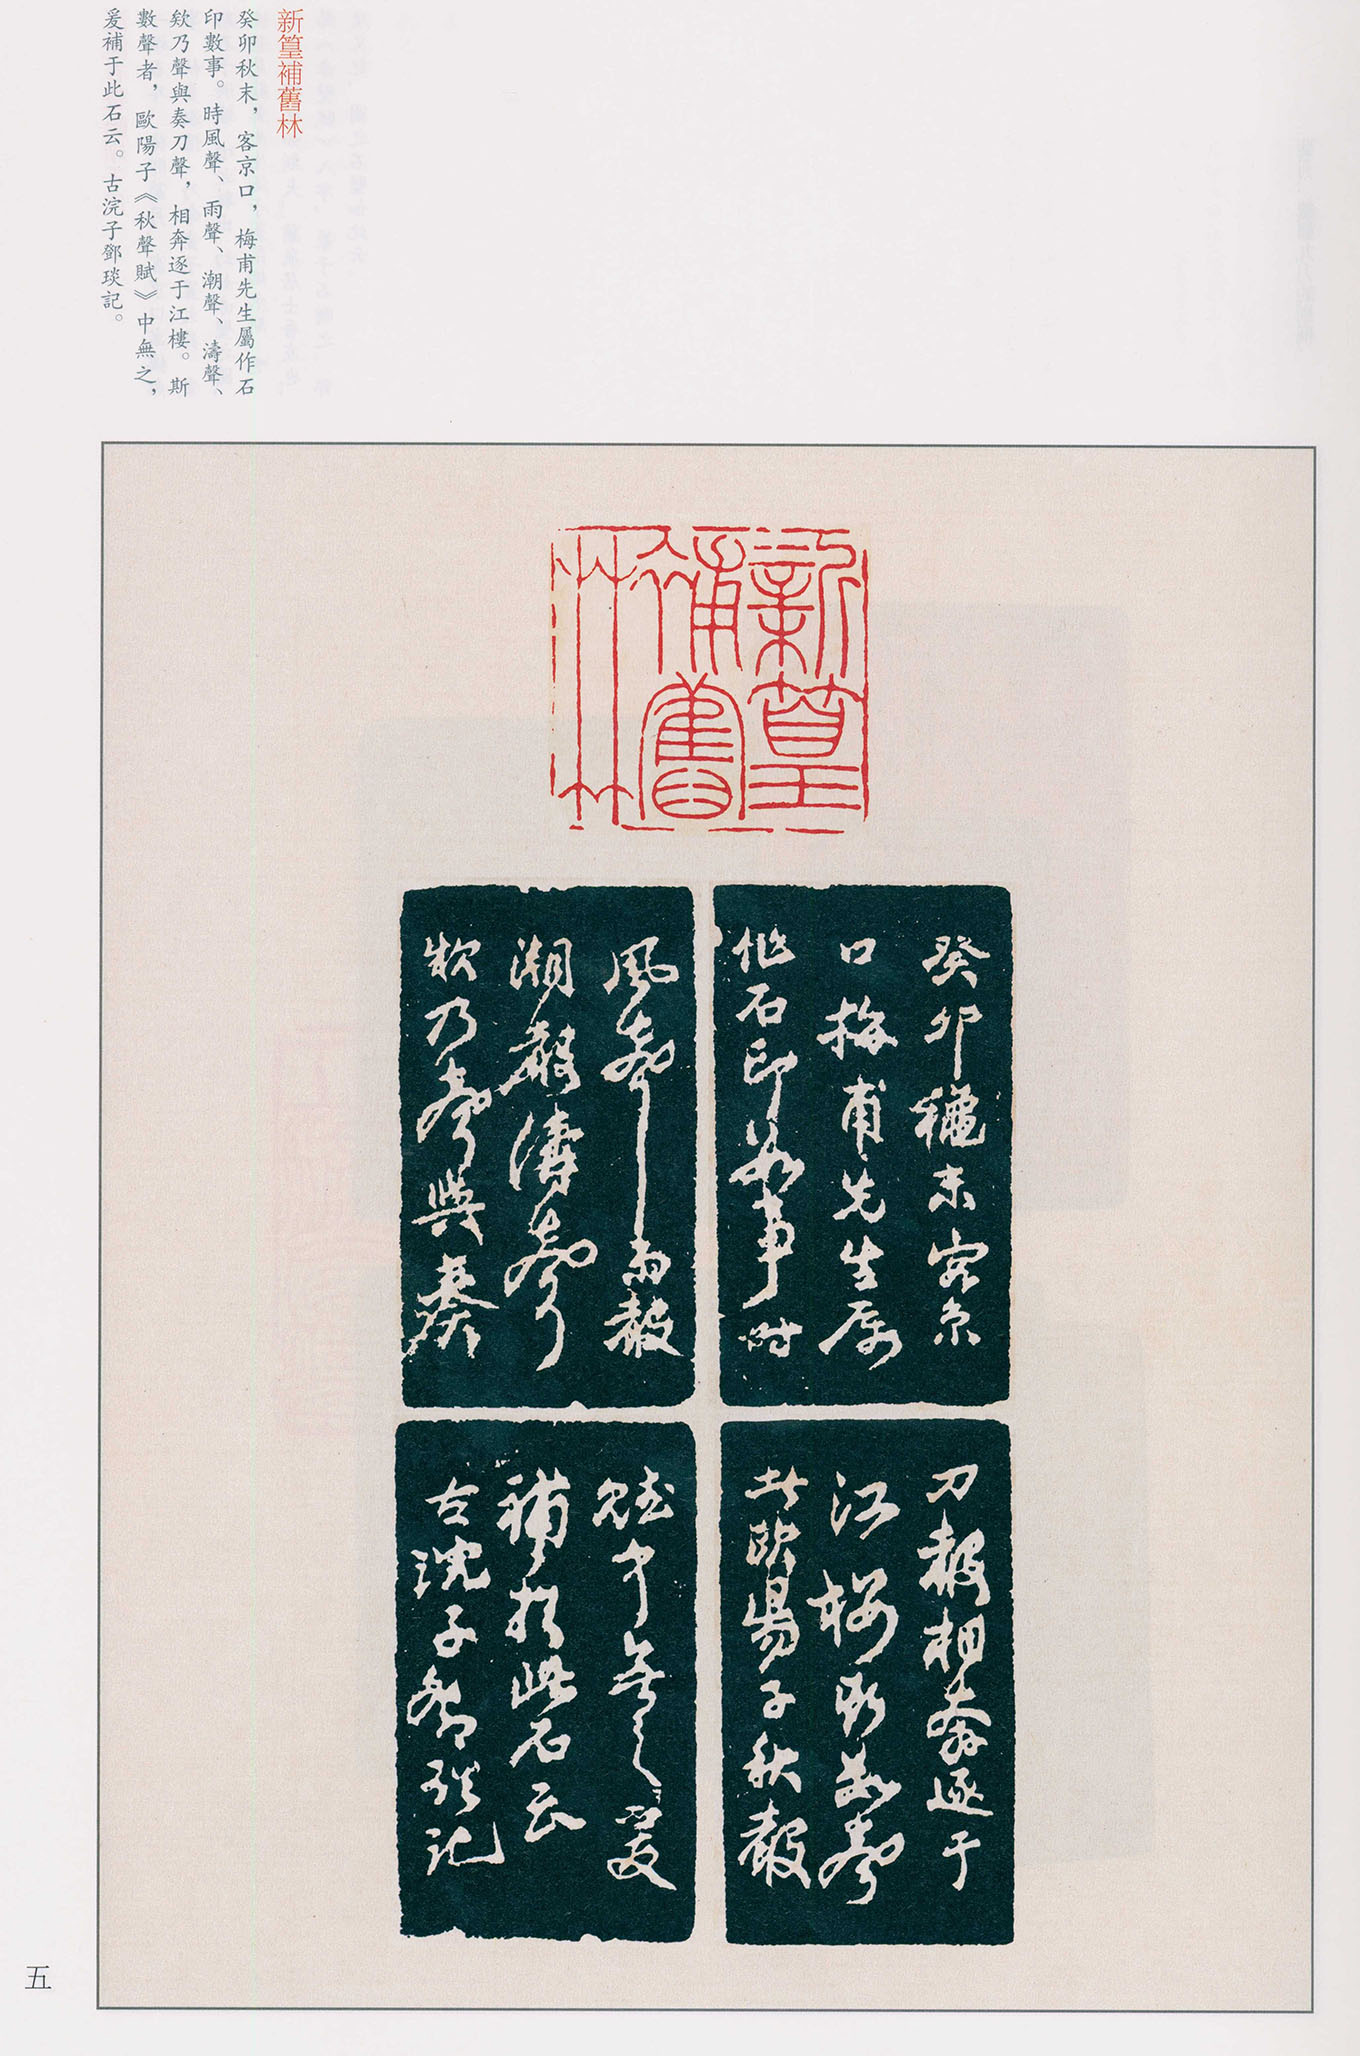 新篁補舊林
癸卯秋末，客京口，梅甫先生屬作石
印數事。時風聲、雨聲、潮聲、濤聲、
欸乃聲與奏刀聲，相奔逐于江樓。斯
數聲者，歐陽子《秋聲賦》中無之，
爰補于此石云。古浣子鄧琰記。
新篁補舊林
癸卯穐末客京
口梅甫先生屬
作石印數事時
風聲雨聲
潮聲濤聲
欸乃聲與奏
刀聲相奔逐于
江樓斯數聲
者歐陽子秋聲
賦中無之爰
補於此石云
古浣子鄧琰記
五